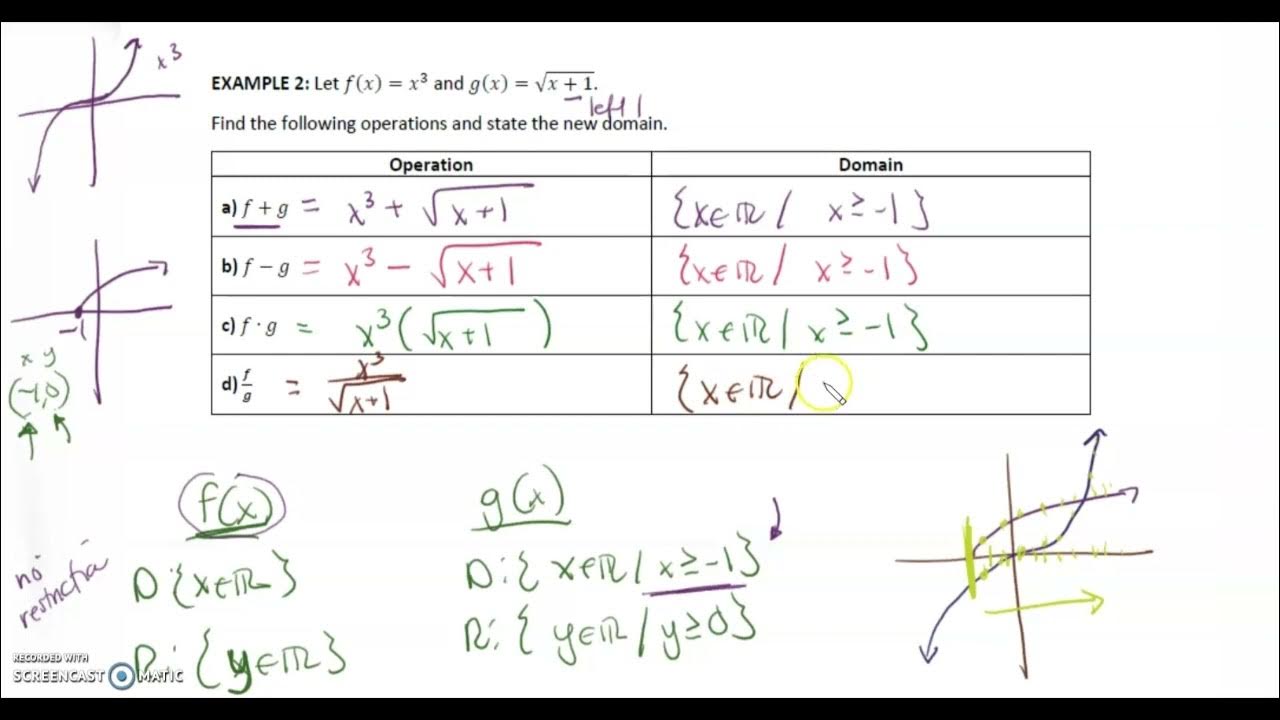 x³
EXAMPLE 2: Let f(x) = x³ and g(x) = √(x + 1).
left 1
Find the following operations and state the new domain.
Operation Domain
a) f + g = x³ + √(x+1) {x∈ℝ / x ≥ -1}
b) f − g = x³ − √(x+1) {x∈ℝ / x ≥ -1}
c) f · g = x³(√(x+1)) {x∈ℝ / x ≥ -1}
d) f/g = x³/√(x+1) {x∈ℝ /
-1
x y
(-1,0)
f(x) g(x)
no restriction
D: {x∈ℝ} D: { x∈ℝ / x ≥ -1}
R: {y∈ℝ} R: { y∈ℝ / y ≥ 0}
RECORDED WITH
SCREENCAST MATIC